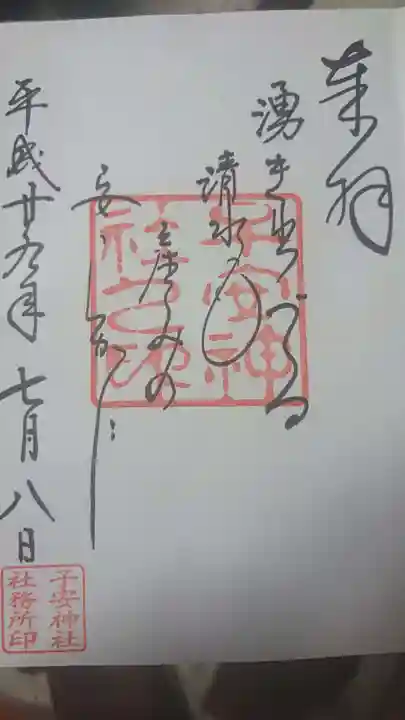 奉拝
湧き出づる
清水の
産みの
安
平成廿九年七月八日
子安神社
社務所印